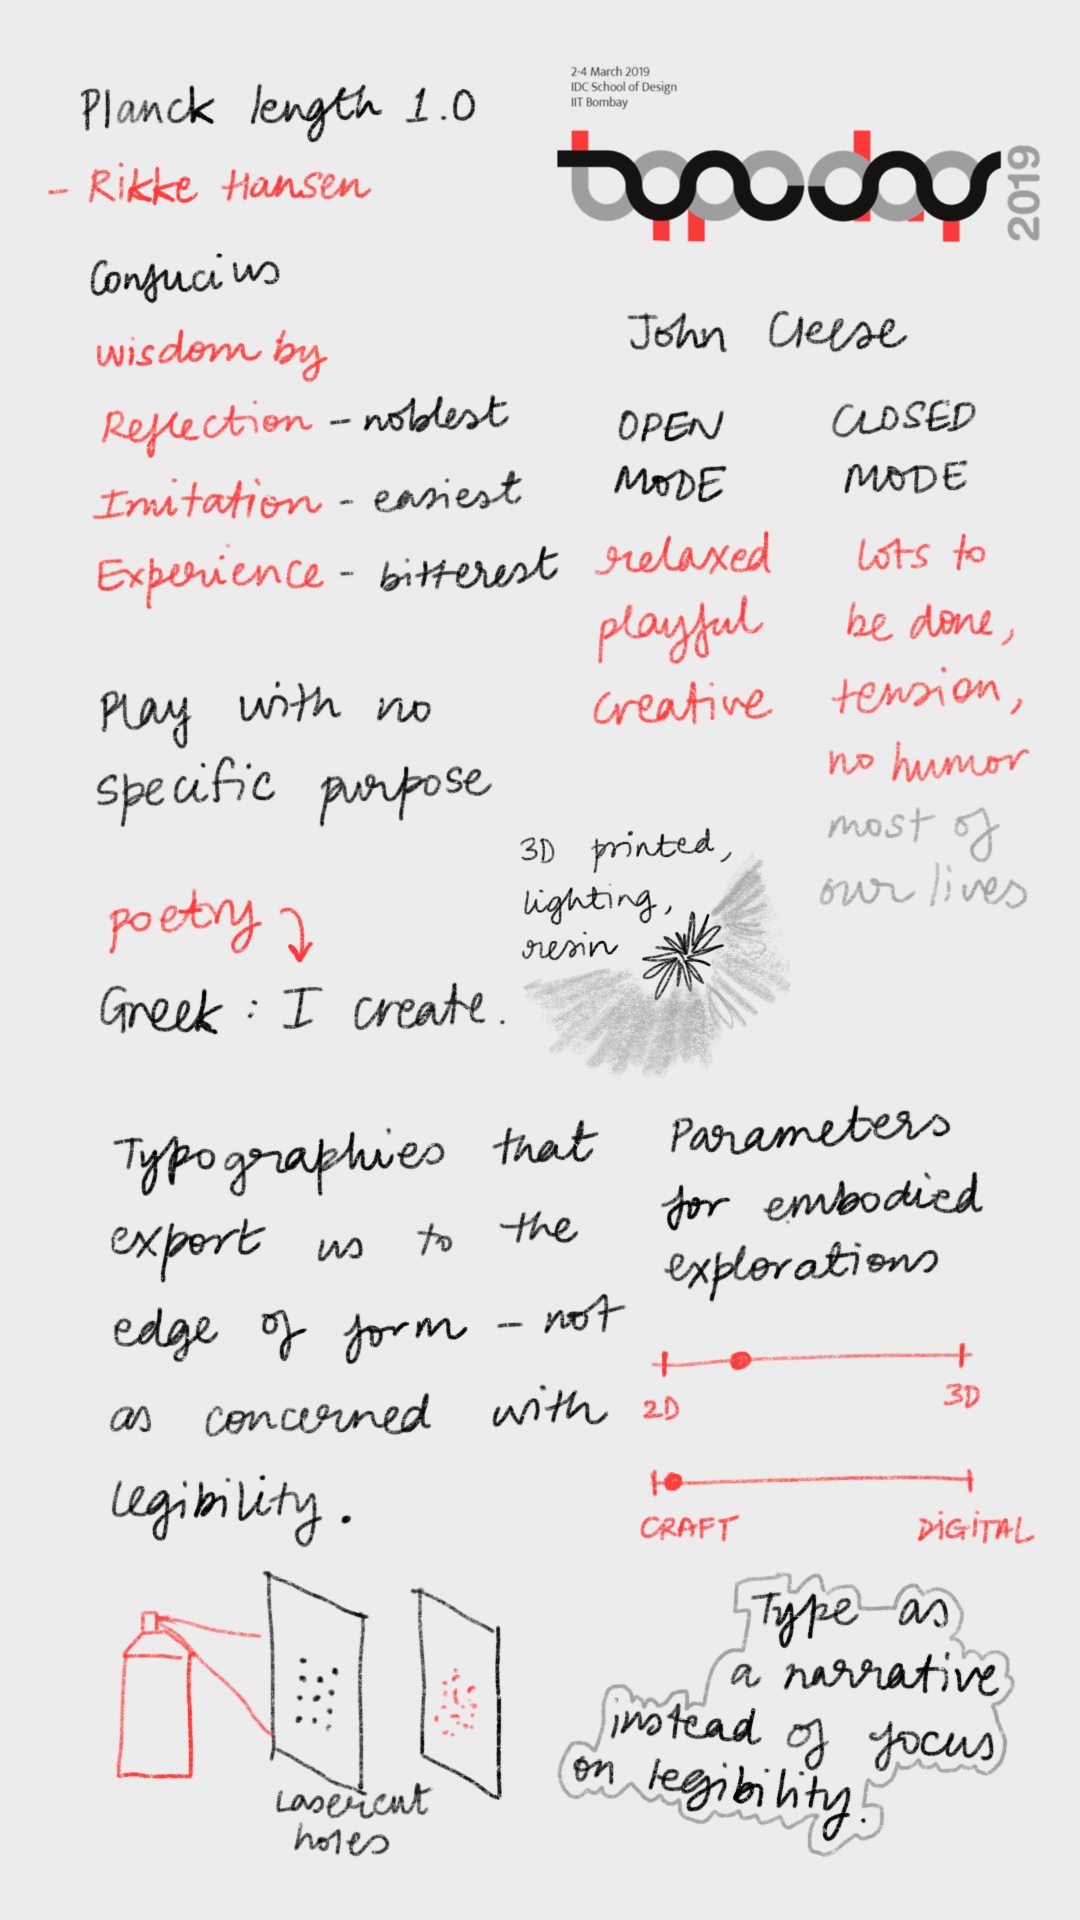 2-4 March 2019
IDC School of Design
IIT Bombay
typoday
2019
Planck length 1.0
- Rikke Hansen
Confucius
wisdom by
Reflection - noblest
Imitation - easiest
Experience - bitterest
John Cleese
OPEN
MODE
relaxed
playful
creative
CLOSED
MODE
lots to
be done,
tension,
no humor
most of
our lives
Play with no
specific purpose
poetry
Greek : I create.
3D printed,
lighting,
resin
Typographies that
export us to the
edge of form - not
as concerned with
legibility.
Parameters
for embodied
explorations
2D 3D
CRAFT DIGITAL
Lasercut
holes
Type as
a narrative
instead of focus
on legibility.